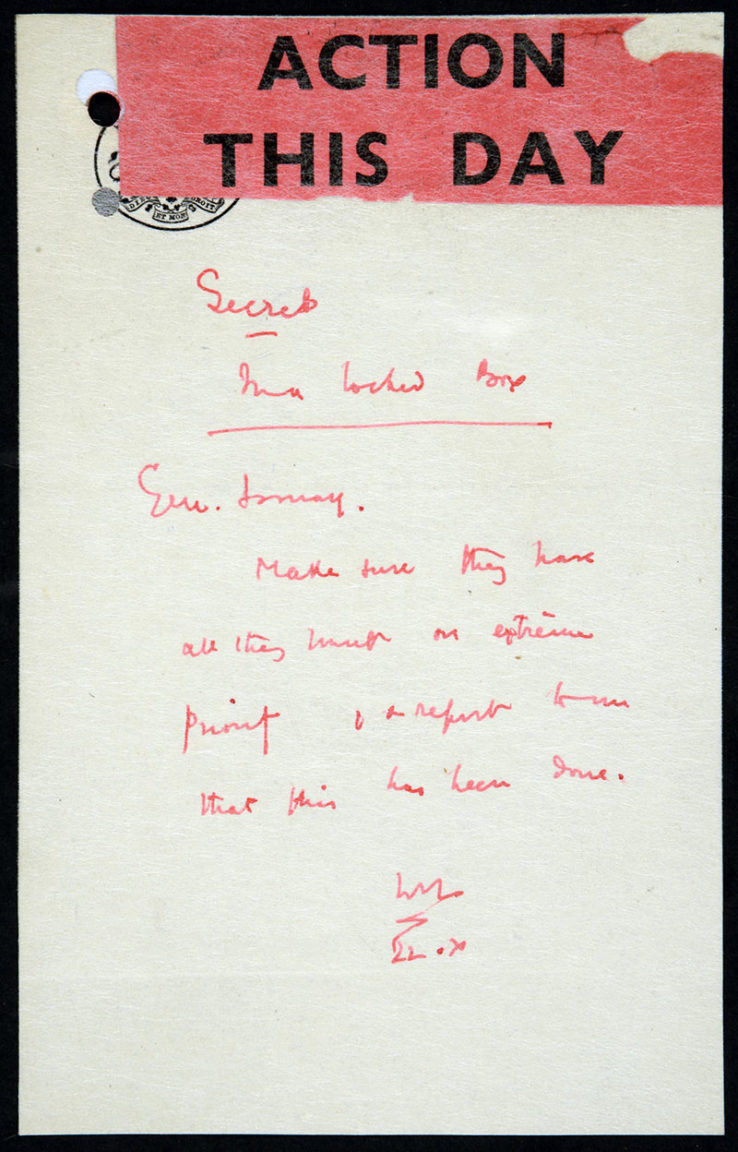 ACTION
THIS DAY
DIEU DROIT
ET MON
Secret
In a locked Box
Gen. Ismay.
Make sure they have
all they want on extreme
priority & report to me
that this has been done.
WSC
22.x